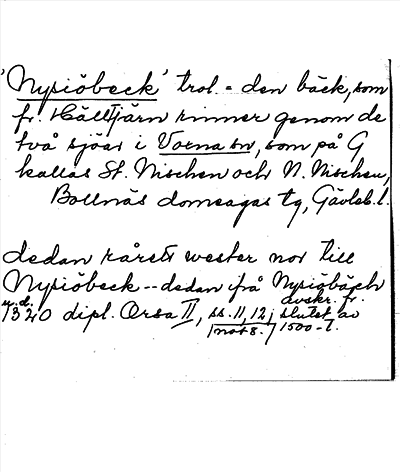 'Nysiöbeck' trol. = den bäck, som
fr. Hälltjärn rinner genom de
två sjöar i Voxna sn, som på G
kallas St. Nischen och N. Nischen,
Bollnäs domsagas tg, Gävleb. l.
dedan rårett wester nor till
Nysiöbeck -- dedan ifrå Nysiöbäch
u.d. avskr. fr.
1320 dipl. Orsa II, ss. 11, 12; slutet av
not 8. 1500-t.